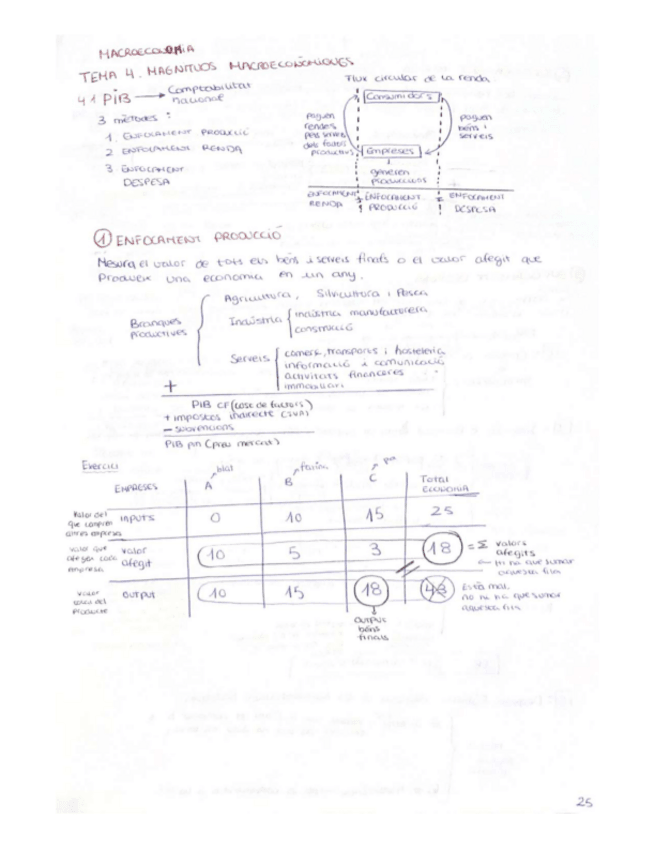 MACROECONOMIA
TEMA 4. MAGNITUDS MACROECONÒMIQUES
4.1 PIB → Comptabilitat
nacional
3 mètodes:
1. ENFOCAMENT PRODUCCIÓ
2 ENFOCAMENT RENDA
3 ENFOCAMENT
DESPESA
Flux circular de la renda
Consumidors
paguen
rendes
pels serveis
dels factors
productius
paguen
béns i
serveis
Empreses
generen
produccions
ENFOCAMENT
RENDA
=
ENFOCAMENT
PRODUCCIÓ
=
ENFOCAMENT
DESPESA
1 ENFOCAMENT PRODUCCIÓ
Mesura el valor de tots els béns i serveis finals o el valor afegit que
produeix una economia en un any.
Branques
productives
Agricultura, Silvicultura i Pesca
Indústria
indústria manufacturera
construcció
Serveis
comerç, transports i hosteleria
informació i comunicació
activitats financeres
immobiliari
+
PIB CF (cost de factors)
+ impostos indirecte (IVA)
- subvencions
PIB pm (preu mercat)
Exercici
blat
farina
pa
EMPRESES A B C Total
ECONOMIA
Valor del
que compren
altres empreses
INPUTS 0 10 15 25
valor que
afegeix cada
empresa
valor
afegit 10 5 3 18 = Σ valors
afegits
hi ha que sumar
aquesta fila
valor
total del
producte
OUTPUT 10 15 18 43
Està mal
no hi ha que sumar
aquesta fila
output
béns
finals
25